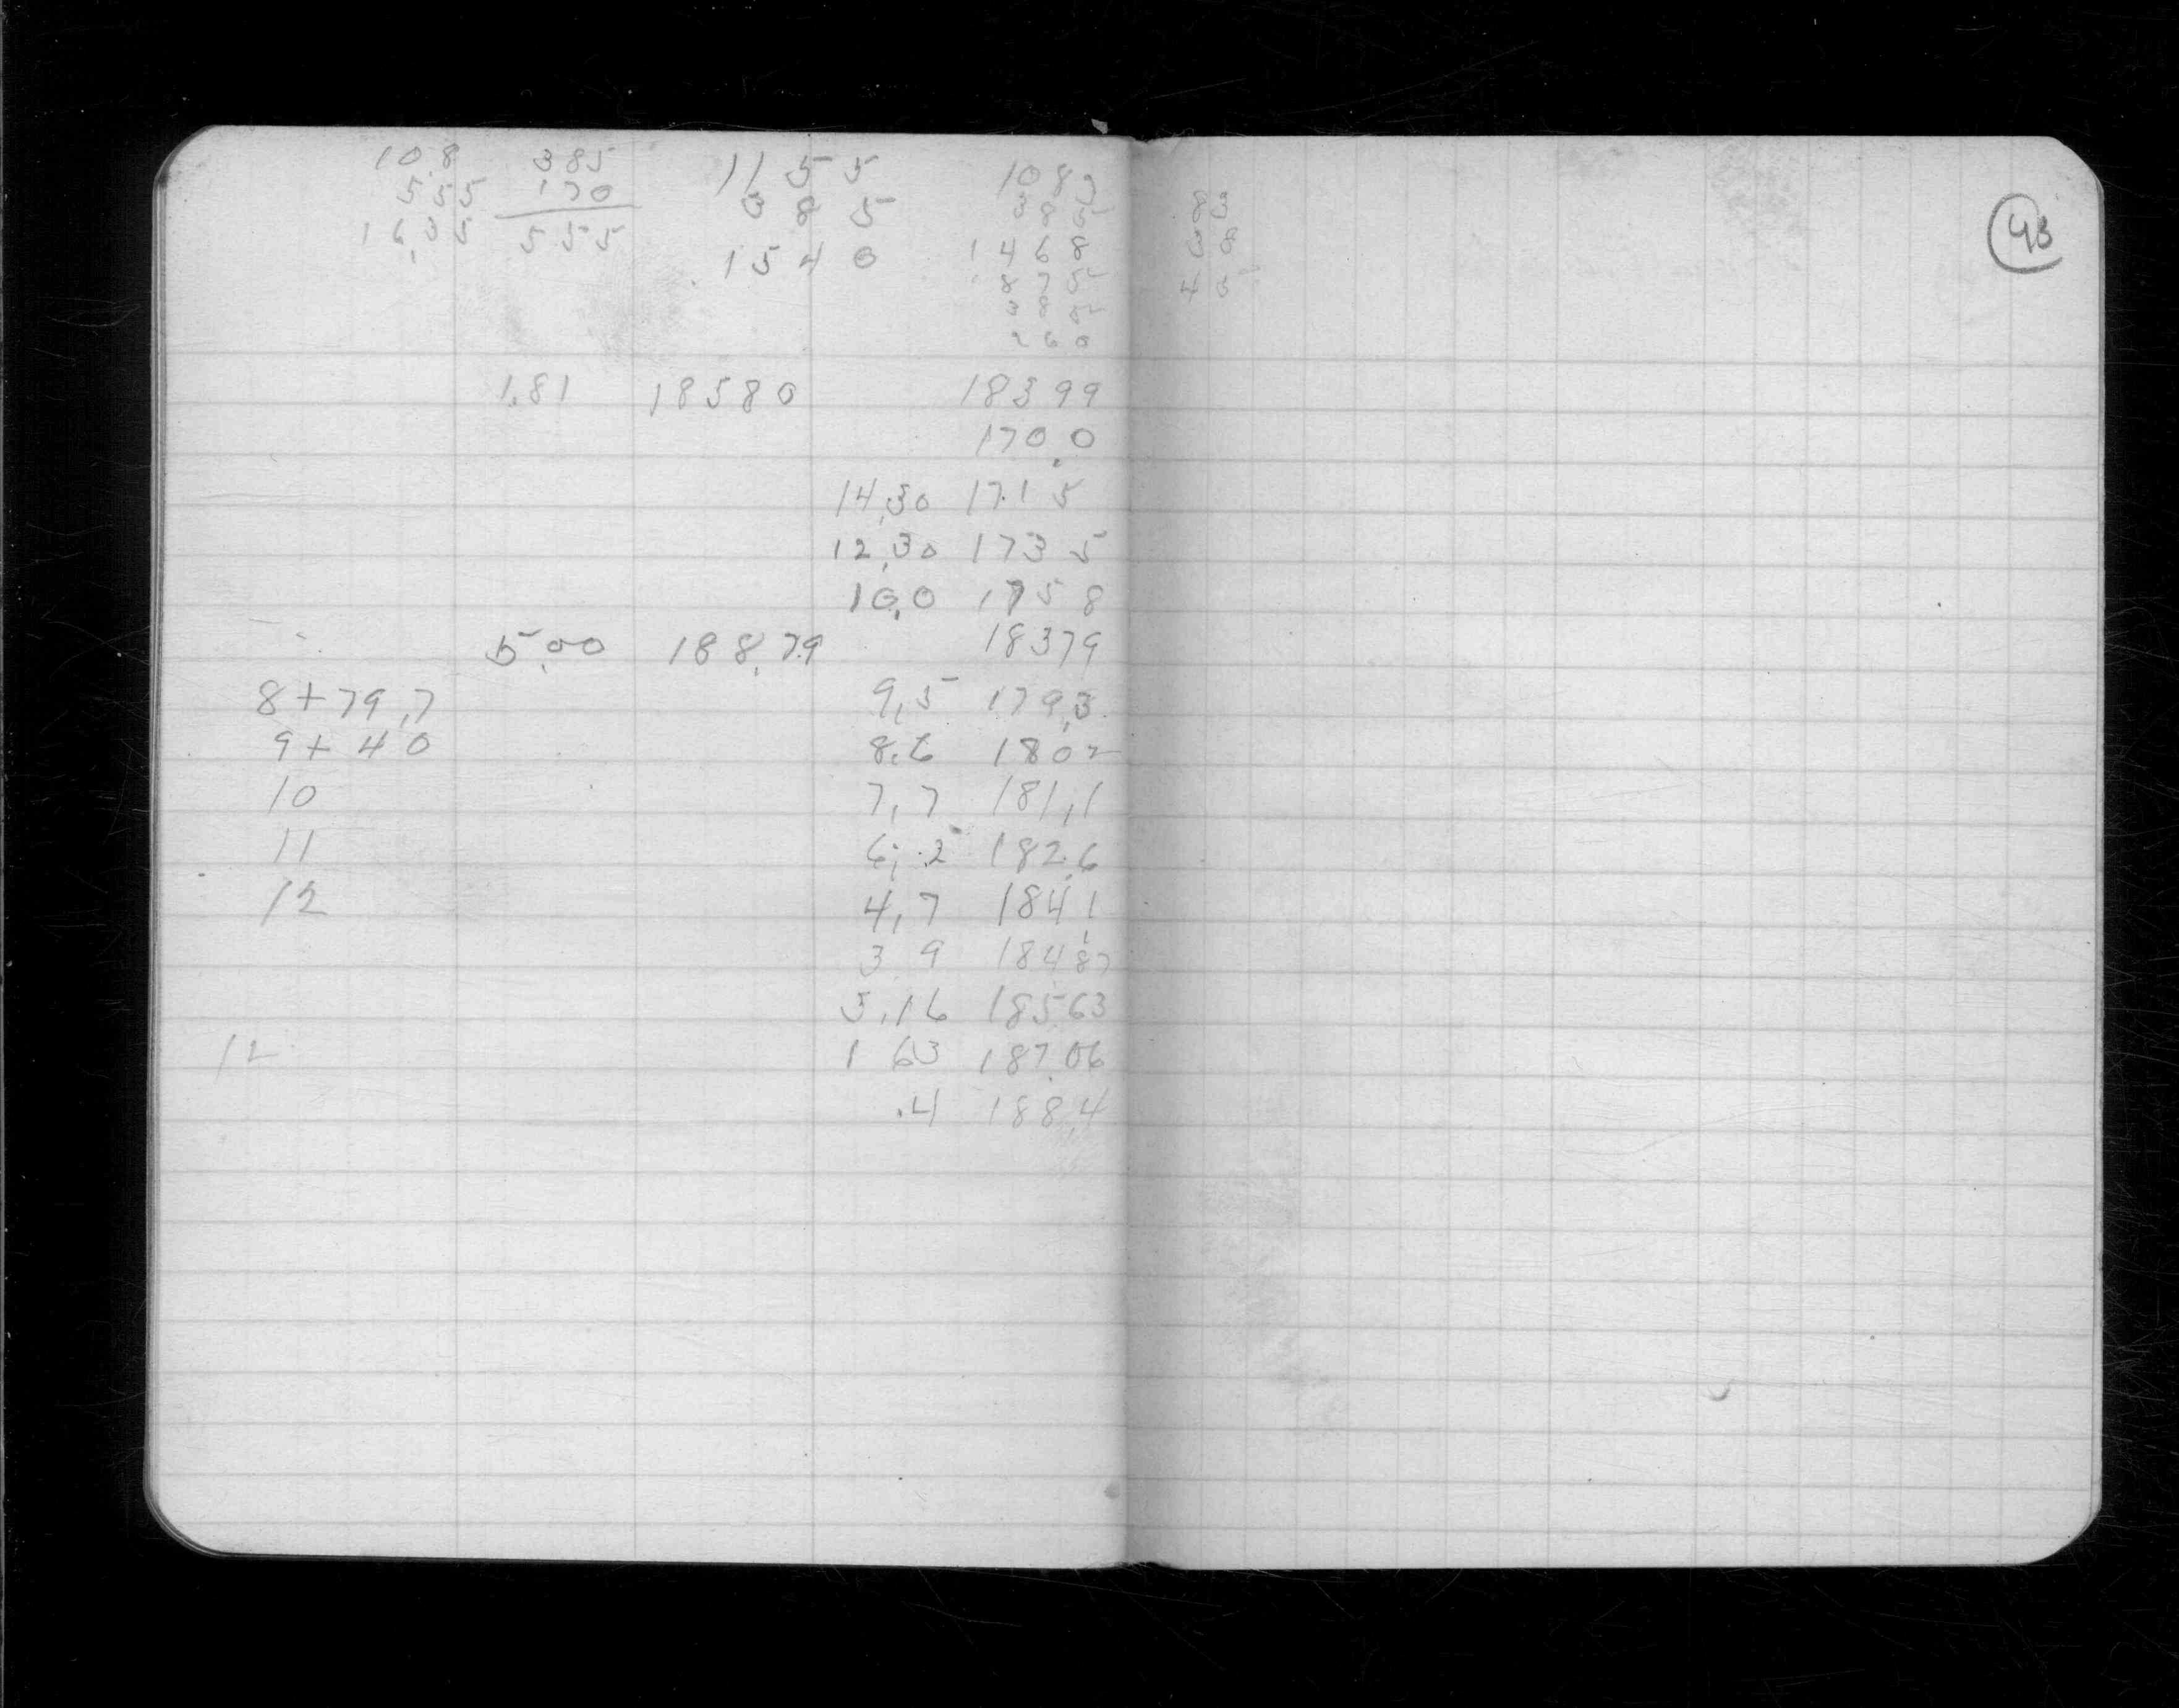 10.8 385 1155 1083
555 170 385 385
16.35 555 1540 1468
1875
385
260
1.81 18580 18399
170.0
14.30 171 5
12.30 173 5
10.0 175 8
5.00 188.79 18379
8+79.7 9.5 179.3
9+40 8.6 180 2
10 7.7 181.1
11 6.2 182.6
12 4.7 184.1
3 9 184 87
3.16 18563
12 1 63 187.06
.4 188.4
83
38
45
93